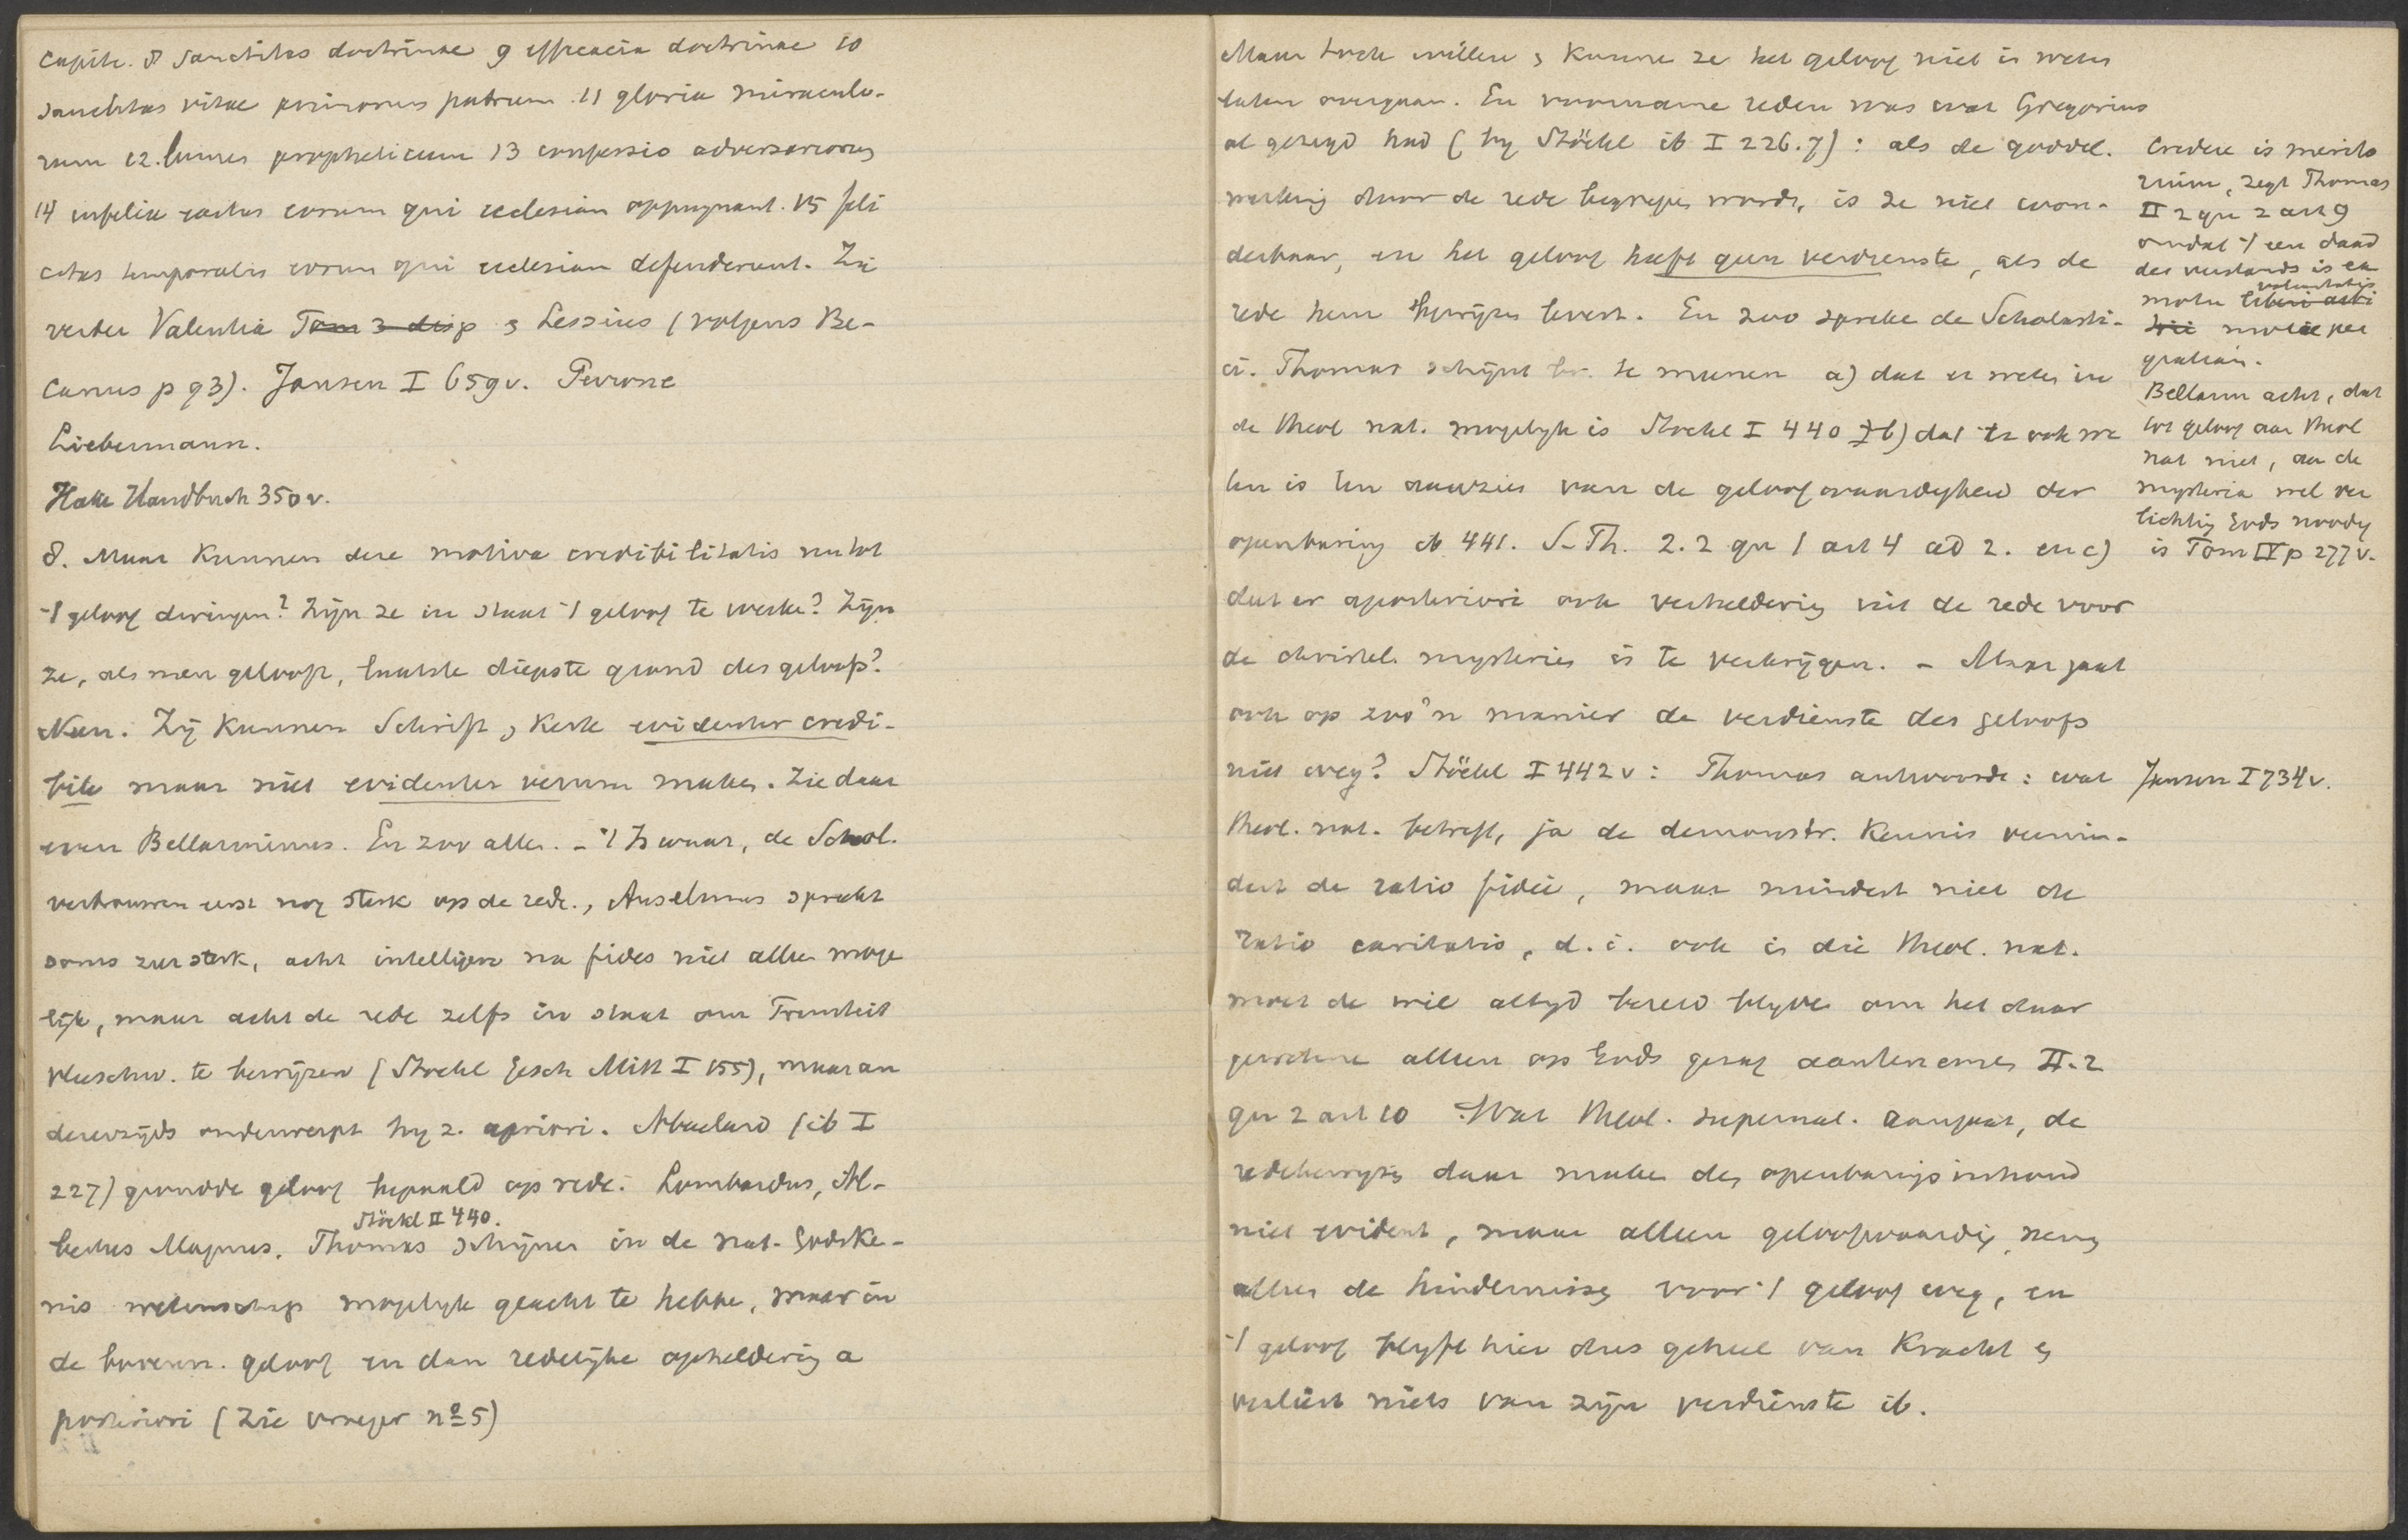 capite. 8 sanctitas doctrinae 9 efficacia doctrinae 10
sanctitas vitae primorum patrum. 11 gloria miraculo-
rum 12. lumen propheticum 13 confessio adversariorum
14 infelix exitus eorum qui ecclesiam oppugnant. 15 feli
citas temporalis eorum qui ecclesiam defenderunt. Zie
verder Valentia Tom 3 disp & Lessius (volgens Be-
canus p 93). Jansen I 659v. Perrone
Liebermann.
Hake Handbuch 350v.
8. Maar kunnen deze motiva credibilitatis nu tot
't geloof dwingen? Zijn ze in staat 't geloof te werke? Zijn
ze, als men gelooft, laatste diepste grond des geloofs?
Neen. Zij kunnen Schrift & Kerk evidenter credi-
bile maar niet evidenter verum maken. Zie daar
over Bellarminus. En zoo allen. - 't Is waar, de Schol.
vertrouwen eerst nog sterk op de rede., Anselmus spreekt
soms zeer sterk, acht intelligere na fides niet alleen moge
lijk, maar acht de rede zelfs in staat om Triniteit
Vleeschw. te bewijzen (Stöckl Gesch Mitt I 155), maar an
derezijds onderwerpt hij z. apriori. Abaelard (ib I
227) grondde geloof bepaald op rede. Lombardus, Al-
Stöckl II 440.
bertus Magnus. Thomas schijnen in de nat. Godske-
nis wetenschap mogelijk geacht te hebbe, maar in
de bovenn. geloof en dan redelijke opheldering a
posteriori (zie vroeger no 5)
Maar toch willen & kunne ze het geloof niet in weten
laten overgaan. En voorname reden was wat Gregorius
al gezegd had (bij Stöckl ib I 226.7): als de goddel.
werking door de rede begrepen wordt, is ze niet won-
derbaar, en het geloof heeft geen verdienste, als de
rede hem bewijzen levert. En zoo spreke de Scholasti-
ci. Thomas schijnt te meenen a) dat er weten in
de theol nat. mogelijk is Stöckl I 440 b) dat er ook we
ten is ten aanzien van de geloofwaardigheid der
openbaring ib 441. S. Th. 2.2 qu 1 art 4 ad 2. en c)
dat er aposteriori ook verheldering uit de rede voor
de christel. mysteries is te verkrijgen. - Maar gaat
ook op zoo'n manier de verdienste des geloofs
niet weg? Stöckl I 442v: Thomas antwoordt: wat
theol. nat. betreft, ja de demonstr. kennis vermin-
dert de ratio fidei, maar mindert niet de
ratio caritatis, d.i. ook in die theol. nat.
moet de wil altijd bereid blijve om het daar
geweten alleen op Gods gezag aan te nemen II-2
qu 2 art 10 Wat theol. supernat. aangaat, de
redebewijzen daar make den openbaringsinhoud
niet evident, maar alleen geloofwaardig, neme
alleen de hindernissen voor 't geloof weg, en
't geloof blijft hier dus geheel van kracht en
verliest niets van zijn verdienste ib.
Credere is merito
rium, zegt Thomas
II 2 qu 2 art 9
omdat 't een daad
des verstands is ex
voluntatis
motu liberi arbi
trii motae per
gratiam.
Bellarm acht, dat
tot geloof aan theol
nat niet, aan de
mysteria wel ver
lichting Gods noodig
is Tom IV p 277v.
Jansen I 734v.